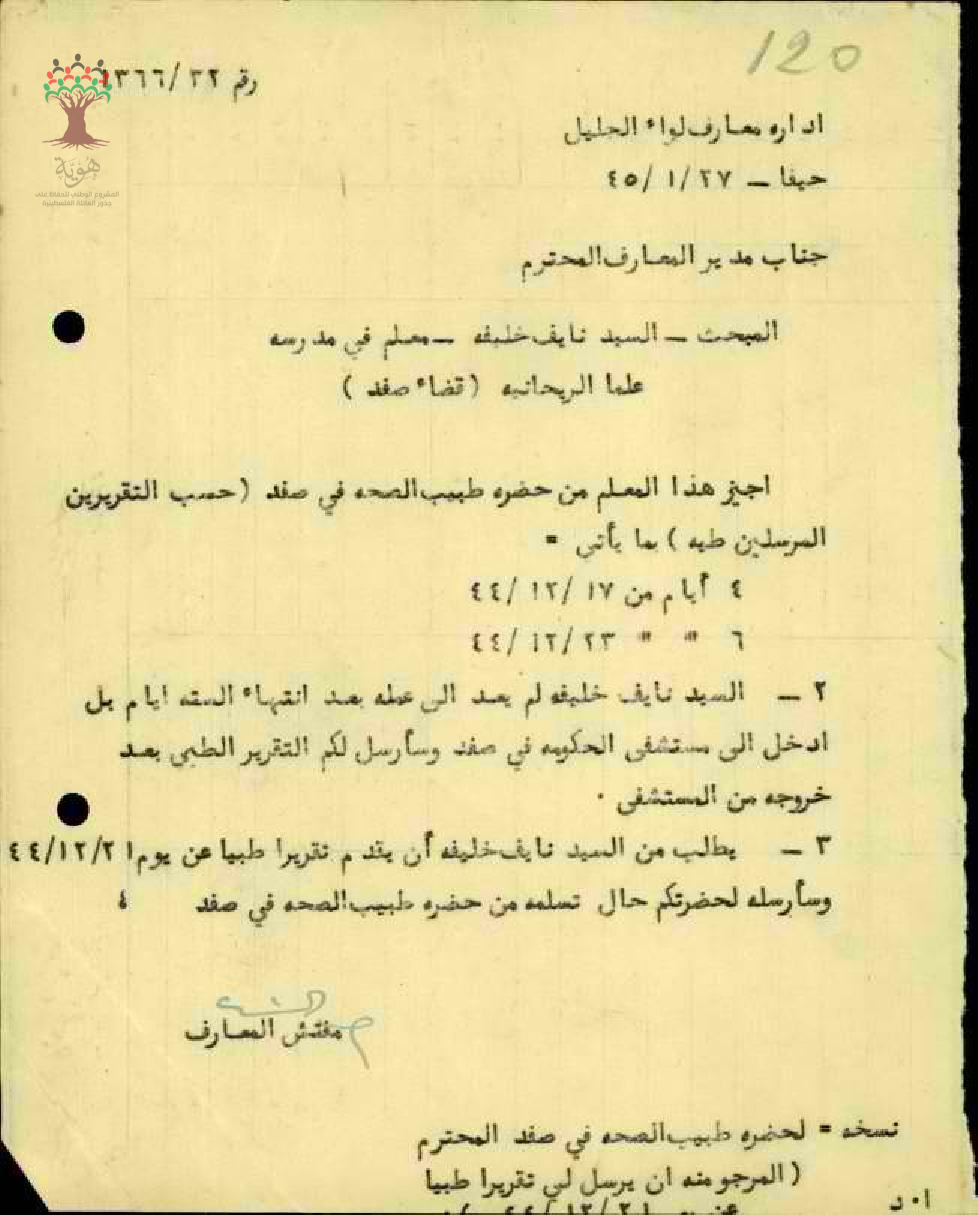 120
رقم ٣٢/١٣٦٦
هوية
المشروع الوطني للحفاظ على
جذور العائلة الفلسطينية
اداره معارف لواء الجليل
حيفا – ٢٧/ ١/ ٤٥
جناب مدير المعارف المحترم
المبحث – السيد نايف خليفه – معلم في مدرسه
علما الريحانيه ( قضاء صفد )
اجيز هذا المعلم من حضره طبيب الصحه في صفد (حسب التقريرين
المرسلين طيه ) بما يأتي =
٤ أيام من ١٧/ ١٢/ ٤٤
٦ " " ٢٣/ ١٢/ ٤٤
٢ – السيد نايف خليفه لم يعد الى عمله بعد انتهاء السته ايام بل
ادخل الى مستشفى الحكومه في صفد وسأرسل لكم التقرير الطبي بعد
خروجه من المستشفى ٠
٣ – يطالب من السيد نايف خليفه أن يقدم تقريرا طبيا عن يوم ٢١/ ١٢/ ٤٤
وسأرسله لحضرتكم حال تسلمه من حضره طبيب الصحه في صفد ٤
مفتش المعارف
نسخه = لحضره طبيب الصحه في صفد المحترم
( المرجو منه ان يرسل لي تقريرا طبيا
ا٠د
عن يوم ٢١/ ١٢/ ٤٤